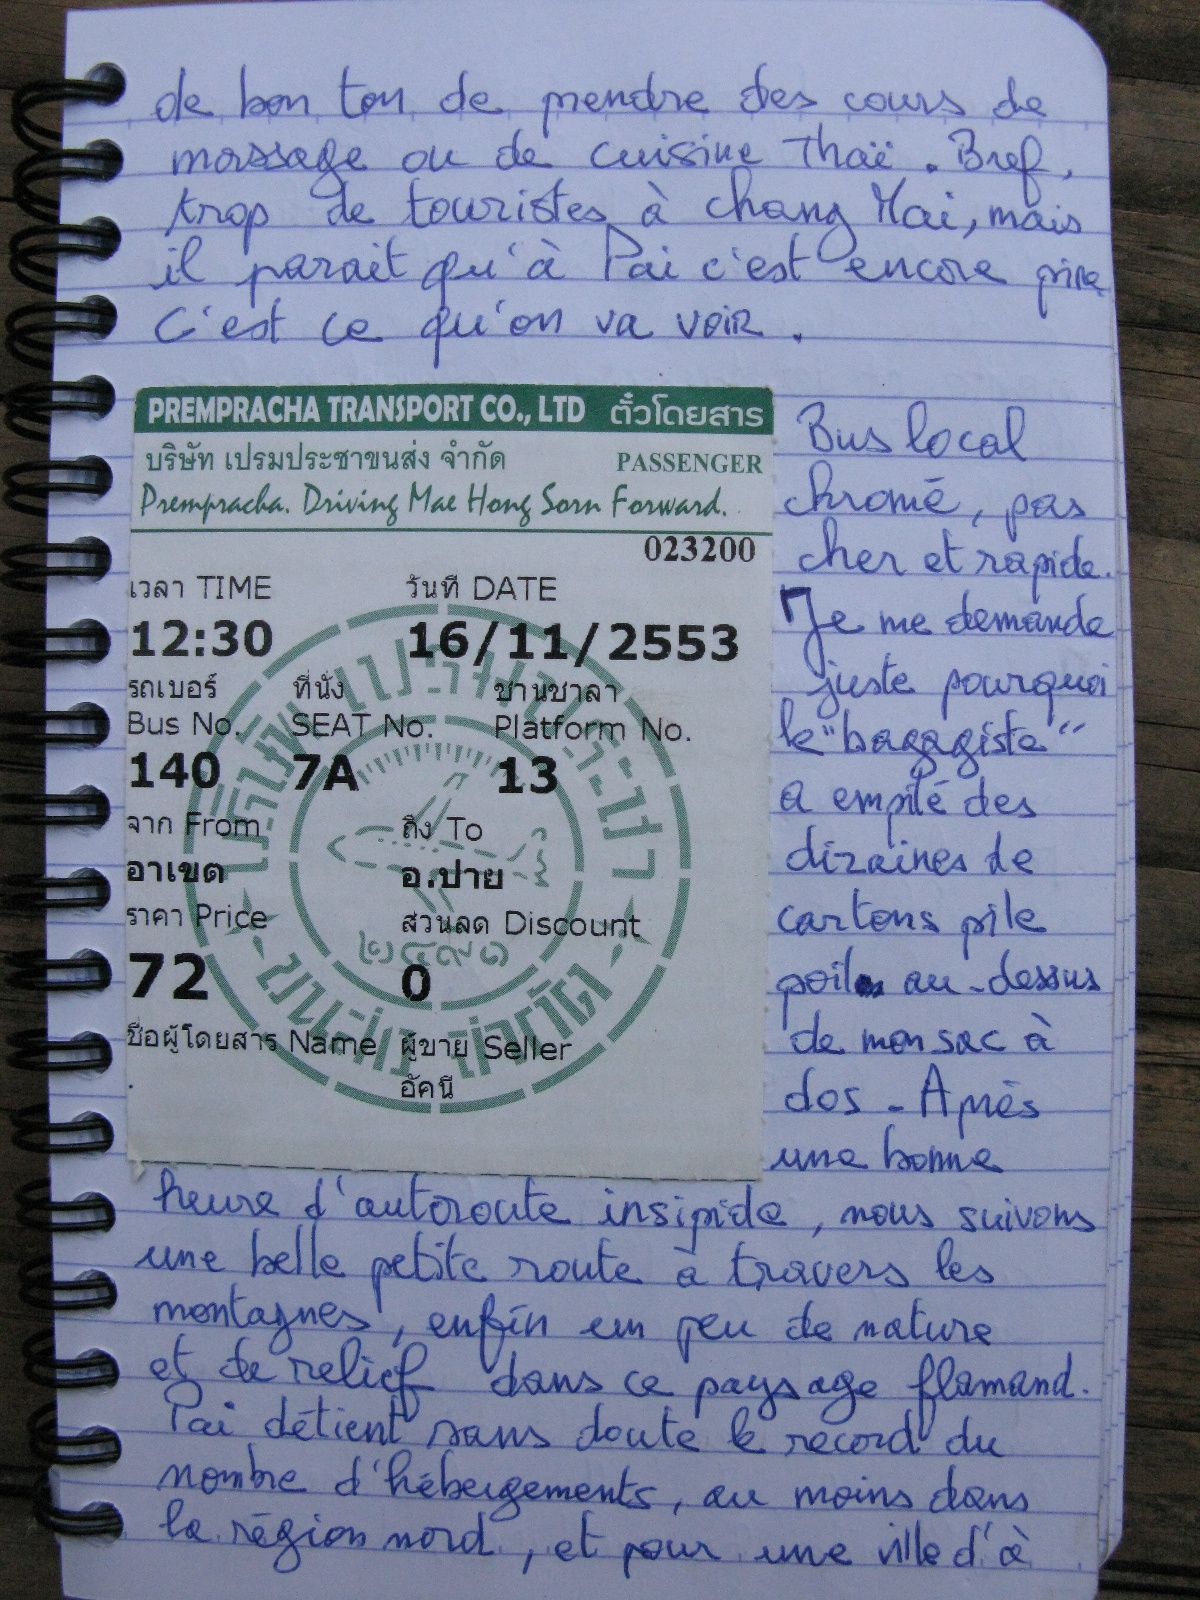 de bon ton de prendre des cours de
massage ou de cuisine Thaï. Bref,
trop de touristes à chang Mai, mais
il parait qu'à Pai c'est encore pire
C'est ce qu'on va voir.
PREMPRACHA TRANSPORT CO., LTD ตั๋วโดยสาร
บริษัท เปรมประชาขนส่ง จำกัด PASSENGER
Prempracha. Driving Mae Hong Sorn Forward.
023200
เวลา TIME วันที่ DATE
12:30 16/11/2553
รถเบอร์ ที่นั่ง ชานชาลา
Bus No. SEAT No. Platform No.
140 7A 13
จาก From ถึง To
อาเขต อ.ปาย
ราคา Price ส่วนลด Discount
๒๔๙๑
72 0
ชื่อผู้โดยสาร Name ผู้ขาย Seller
อัคนี
Bus local
chromé, pas
cher et rapide.
Je me demande
juste pourquoi
le "bagagiste"
a empilé des
dizaines de
cartons pile
poil au-dessus
de mon sac à
dos. Après
une bonne
heure d'autoroute insipide, nous suivons
une belle petite route à travers les
montagnes, enfin un peu de nature
et de relief dans ce paysage flamand.
Pai détient sans doute le record du
nombre d'hébergements, au moins dans
la région nord, et pour une ville d'à